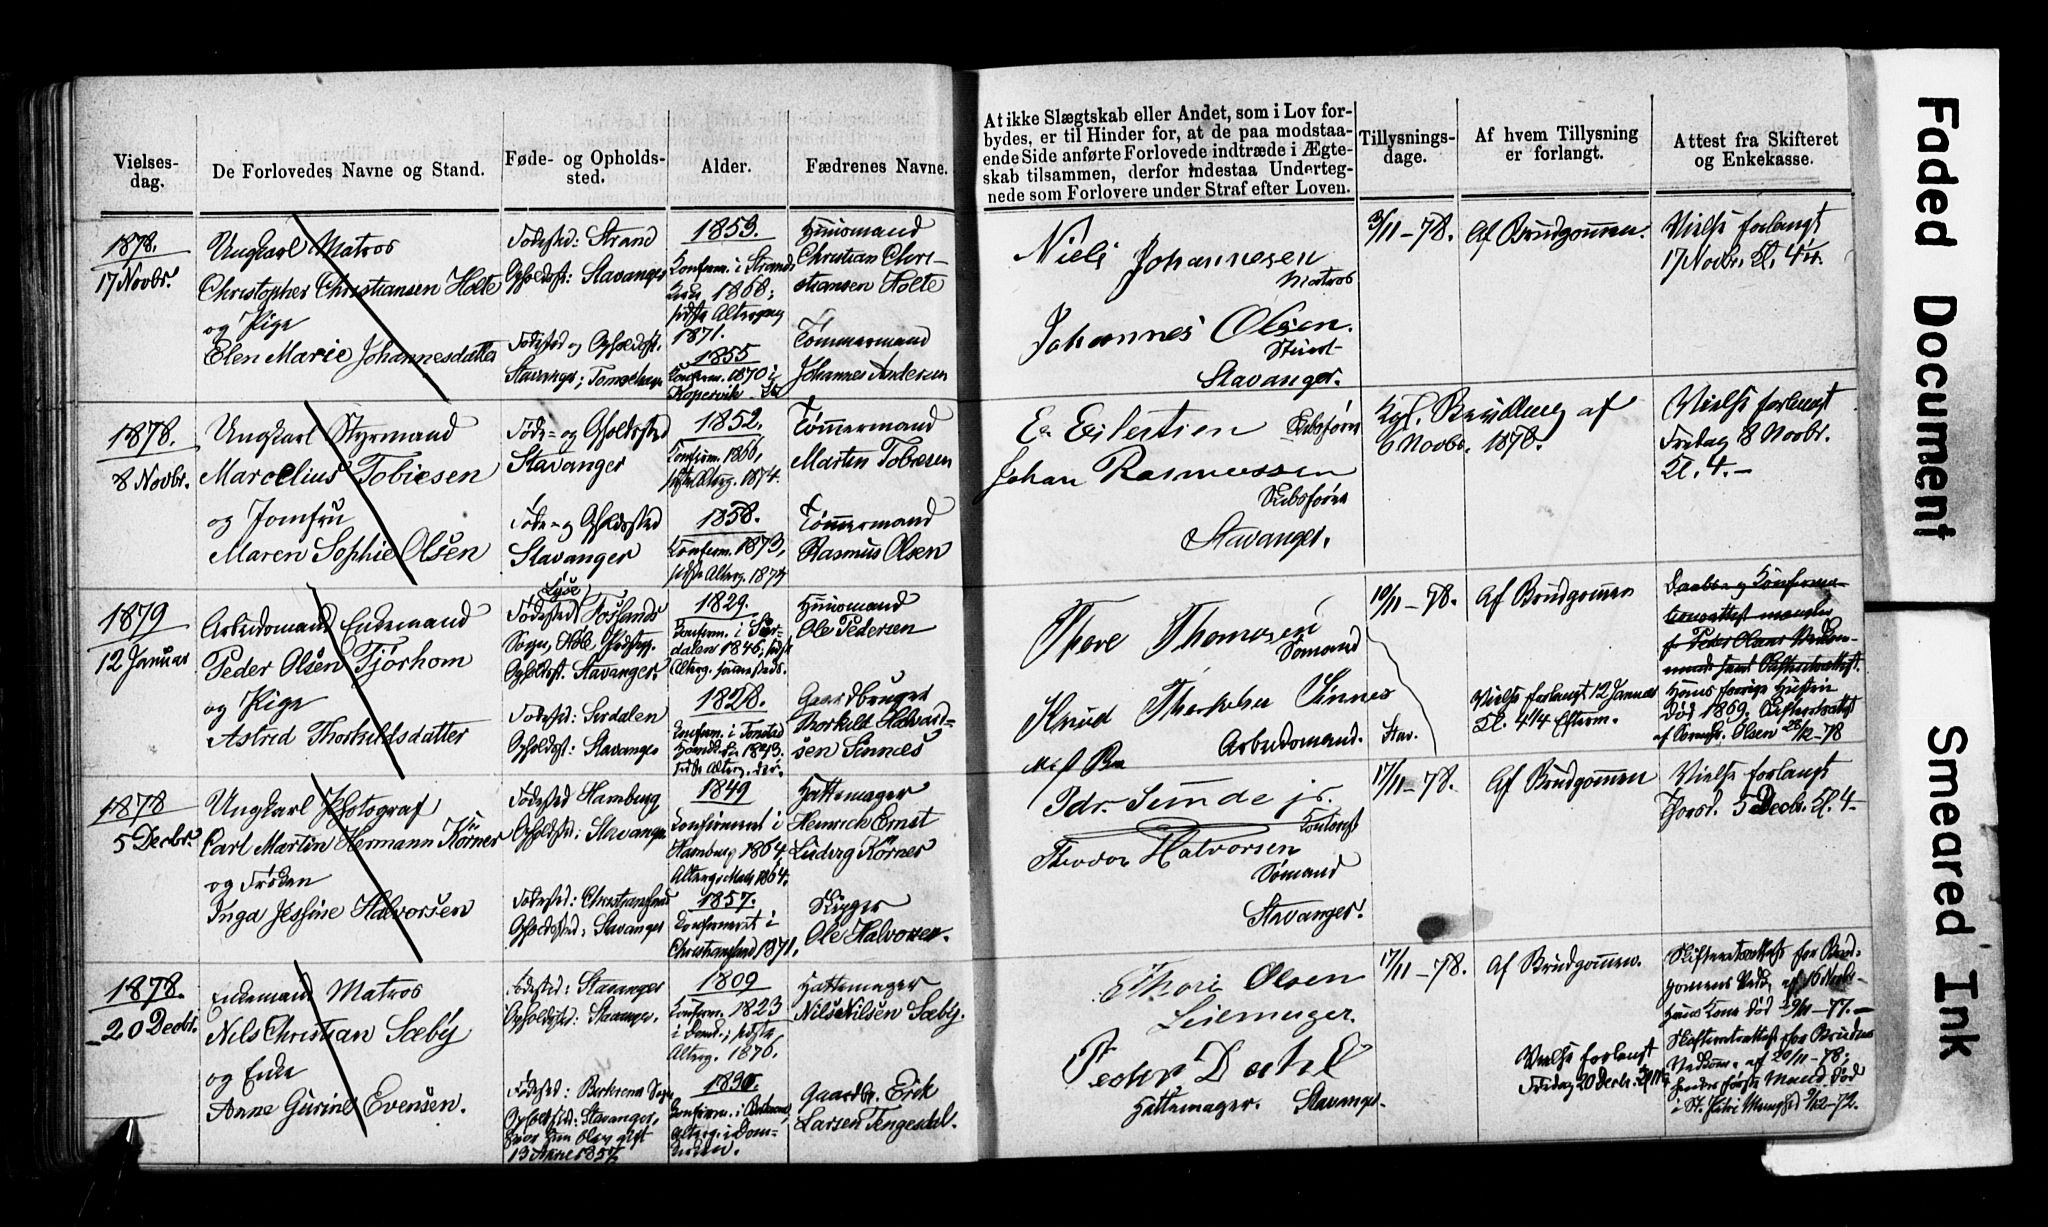 Vielses-
dag.
De Forlovedes Navne og Stand.
Føde- og Opholds-
sted.
Alder.
Fædrenes Navne.
At ikke Slægtskab eller Andet, som i Lov for-
bydes, er til Hinder for, at de paa modstaa-
ende Side anførte Forlovede indtræde i Ægte-
skab tilsammen, derfor indestaa Underteg-
nede som Forlovere under Straf efter Loven.
Tillysnings-
dage.
Af hvem Tillysning
er forlangt.
Attest fra Skifteret
og Enkekasse.
1878.
17 Novbr.
Ungkarl Matros
Christopher Christiansen Holte
og Pige
Elen Marie Johannesdatter
Fødested: Strand
Opholdsst: Stavanger
Fødested og Opholdsst.
Stavanger;
1853.
Konfirm. i Strands
Kirke 1868;
sidste Altergang
1871.
1855
Konfirm. 1870 i
Kopervik
Huusmand
Christian Chri-
stiansen Holte
Tømmermand
Johannes Andersen
Niels Johannesen
Matros
Johannes Olsen.
Stavanger.
3/11 - 78.
Af Brudgommen.
Vielse forlangt
17 Novbr. Kl. 4
1878.
8 Novbr.
Ungkarl Styrmand
Marcelius Tobiesen
og Jomfru
Maren Sophie Olsen
Føde- og Opholdssted
Stavanger
Føde- og Opholdssted
Stavanger
1852.
Konfirm. 1866,
sidste Alterg. 1874.
1858.
Konfirm. 1873,
sidste Alterg. 1873
Tømmermand
Marten Tobiesen
Tømmermand
Rasmus Olsen
E. Eilertsen Skibsfører
Johan Rasmussen
Skibsfører
Stavanger.
Kgl. Bevilling af
6 Novbr. 1878.
Vielse forlangt
Fredag 8 Novbr.
Kl. 4. -
1879
12 Januar
Arbeidsmand Enkemand
Peder Olsen Tjørhom
og Pige
Astrid Thorkildsdatter
Fødested
Sogn,
Opholdsst. Stavanger.
Fødested: Sirdalen
Opholdsst: Stavanger
1829.
Konfirm. i Sir-
dalen 1846, sidste
Alterg. sammesteds.
1828.
Konfirm. i Tonstad
1843.
sidste Alterg. der.
Huusmand
Ole Pedersen
Gaardbruger
Thorkild Halvard-
sen Sinnes
Thore Thomasen
Sømand
Knud Thorkelsen Sinnes
Arbeidsmand. Stav.
10/11 - 78.
Af Brudgommen
Vielse forlangt 12 Januar
Kl. 4 1/4 Efterm.
Hans forrige Hustru
død 1869, Skifteattest
Olsen 28/12 - 78
1878
5 Decbr.
Ungkarl Photograf
Carl Martin Hermann Körner
og Frøken
Inga Jessine Halvorsen
Fødested Hamburg
Opholdsted: Stavanger
Fødested: Christianssand
Opholdsted: Stavanger
1849
Konfirmeret i
Hamburg 1864,
1864.
1857.
Konfirmeret i
Christianssand 1871.
Hattemager
Heinrich Ernst
Ludvig Körner
Skipper
Ole Halvorsen.
Pdr. Sunde jr.
Kontorist
Theodor Halvorsen
Sømand
Stavanger.
17/11 - 78.
Af Brudgommen
Vielse forlangt
Torsd. 5 Decbr. Kl. 4 -
1878.
20 Decbr.
Enkemand Matros
Nils Christian Sæby
og Enke
Anne Gurine Evensen.
Fødested: Stavanger
Opholdsted: Stavanger.
Fødested:
Opholdsted: Stavanger,
1809
Konfirm. 1823
i Domk.; sidste
Alterg. 1876.
Konfirm. i
Alterg. i Dom-
kirken.
Hattemager
Nils Nilsen Sæby.
Gaardbr. Erik
Larsen Tengesdal.
Thore Olsen
Peder Dahl
Hattemager. Stavanger.
17/11 - 78.
Af Brudgommen.
Vielse forlangt
Fredag 20 Decbr.
Skifteretsattest for Brud-
gommens Vedk. af 16 Novbr.
Hans Kone død
Skifteretsattest for Brudens
Vedkom. af 20/11 - 78;
hendes første Mand død
Faded Document
Smeared Ink